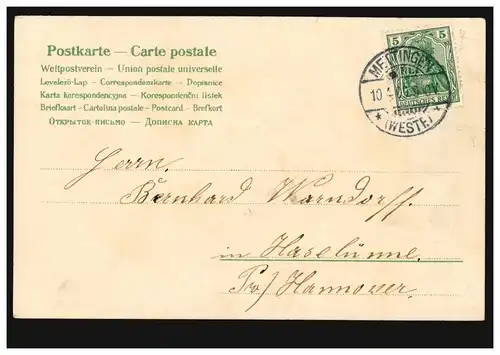 Postkarte — Carte postale
Weltpostverein — Union postale universelle
Levelező-Lap — Correspondenzkarte — Dopisnice
Karta korespondencyjna — Korespondenčni listek
Briefkaart — Cartolina postale — Postcard — Brefkort
Открытое письмо — Дописна карта
5 5
DEUTSCHES REICH
METTINGEN
10
(WESTF.)
Herrn.
Bernhard Warndorff.
in Haselünne.
Prov Hannover.